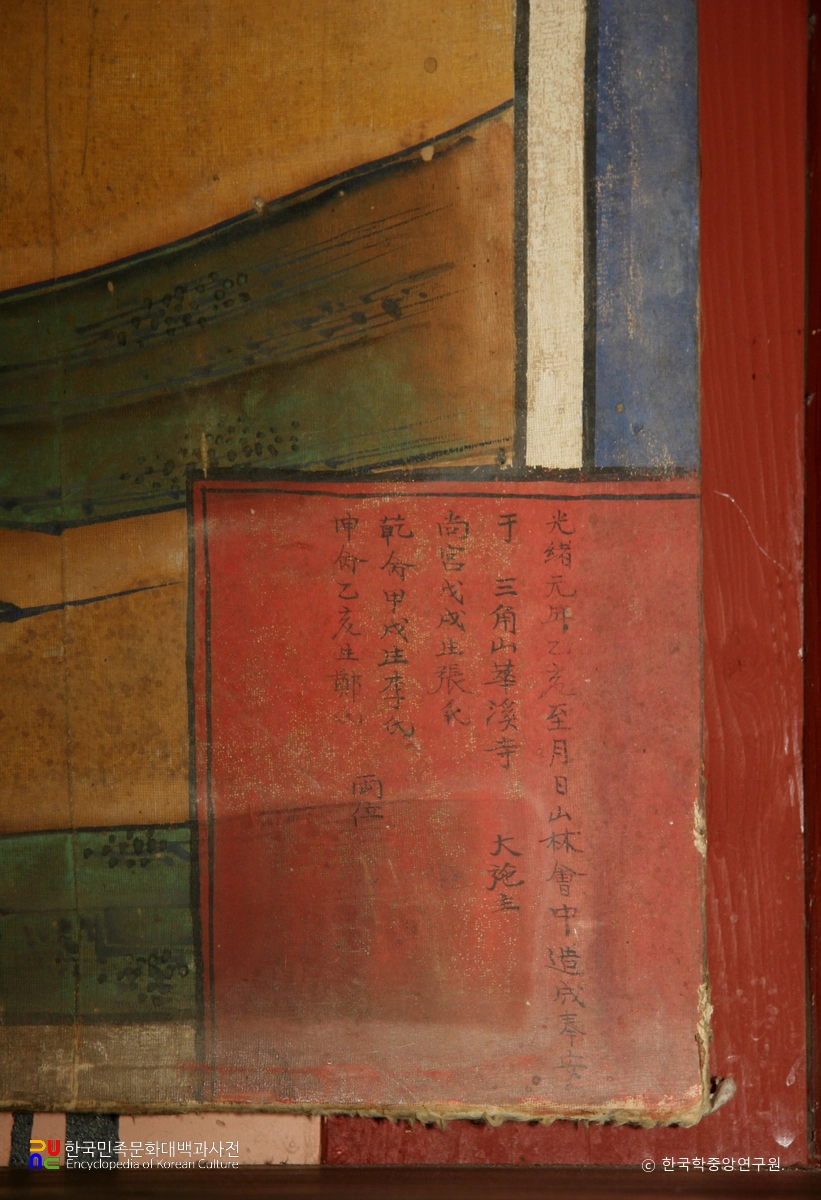 光緖元年乙亥至月日山林會中造成奉安
于 三角山華溪寺 大施主
尙宮戊戌生張氏
乾命甲戌生李氏
坤命乙亥生鄭氏
兩位
한국민족문화대백과사전
Encyclopedia of Korean Culture
© 한국학중앙연구원.